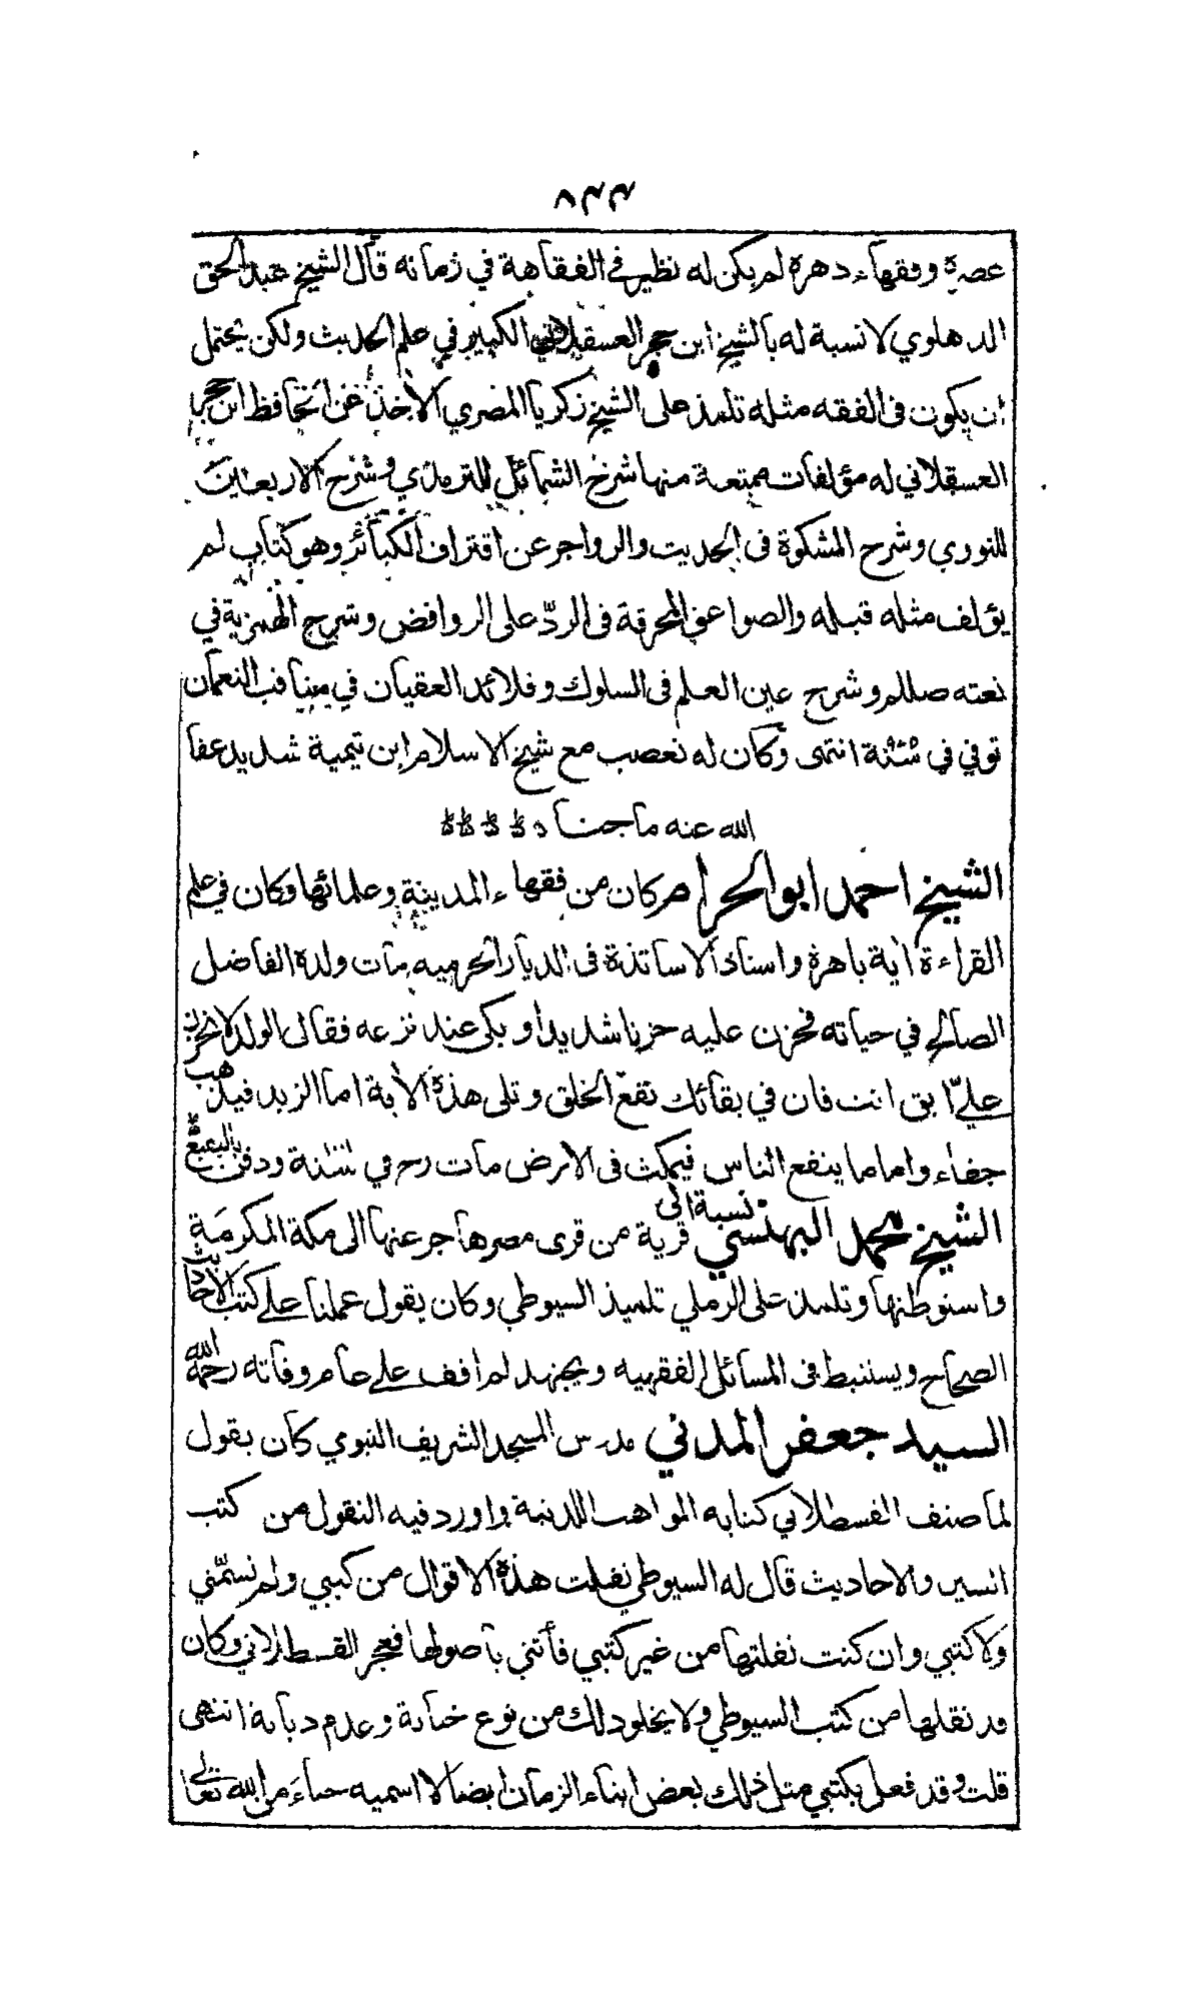 ٨٣٣
عصره وفقهاء دهره لم يكن له نظير في الفقاهة في زمانه قال الشيخ عبد الحق
الدهلوي لا نسبة له بالشيخ ابن حجر العسقلاني الكبير في علم الحديث ولكن يحتمل
ان يكون في الفقه مثله تلمذ على الشيخ زكريا المصري الأخذ عن الحافظ ابن حجر
العسقلاني له مؤلفات ممتعة منها شرح الشمائل للترمذي وشرح الاربعين
للنووي وشرح المشكوة في الحديث والزواجر عن اقتراف الكبائر وهو كتاب لم
يؤلف مثله قبله والصواعق المحرقة في الردّ على الروافض وشرح الهمزية في
نعته صللم وشرح عين العلم في السلوك وقلائد العقيان في مناقب النعمان
توفي في سنة انتهى وكان له تعصب مع شيخ الاسلام ابن تيمية شديد عفا
الله عنه ما جنا
الشيخ احمد ابو الحرام كان من فقهاء المدينة وعلمائها وكان في علم
القراءة اية باهرة واستاذ الاساتذة في الديار الحرميه مات ولده الفاضل
الصالح في حياته فحزن عليه حزنا شديدا وبكى عند نزعه فقال الولد لا تحزن
عليّ ابق انت فان في بقائك نفع الخلق وتلى هذه الأية اما الزبد فيذهب
جفاء واما ما ينفع الناس فيمكث في الارض مات رح في سنة ودفن بالبقيع
الشيخ محمد البهنسي نسبة الى قرية من قرى مصر هاجر عنها الى مكة المكرمة
واستوطنها وتلمذ على الرملي تلميذ السيوطي وكان يقول عملنا على كتب الاحاديث
الصحاح ويستنبط في المسائل الفقهيه ويجتهد لم اقف على عام وفاته رحمه الله
السيد جعفر المدني مدرس المسجد الشريف النبوي كان يقول
لما صنف القسطلاني كتابه المواهب اللدنية واورد فيه النقول من كتب
السير والاحاديث قال له السيوطي نقلت هذه الاقوال من كتبي ولم تسمّني
ولا كتبي وان كنت نقلتها من غير كتبي فأتني باصولها فعجز القسطلاني وكان
قد نقلها من كتب السيوطي ولا يخلو ذلك من نوع خيانة وعدم ديانة انتهى
قلت وقد فعل بكتبي مثل ذلك بعض ابناء الزمان ايضا لا اسميه حياء من الله تعالى